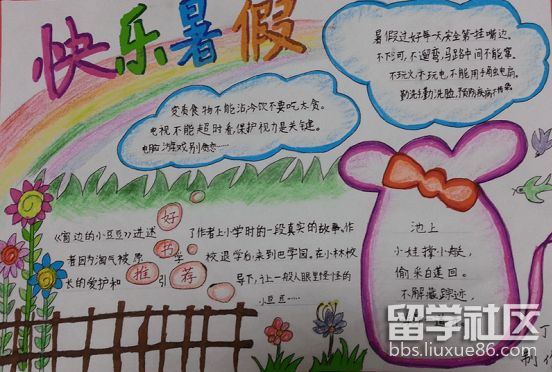 快乐暑假
暑假过好每一天安全第一挂嘴边
不下河,不遛弯,马路中间不能窜。
不玩火,不玩电,不能用手触电扇。
勤洗手勤洗脸,预防疾病
变质食物不能沾冷饮不要吃太贪。
电视不能超时看,保护视力是关键。
电脑游戏别
《窗边的小豆豆》讲述了作者上小学时的一段真实的故事。作
者因为淘气被原学校退学后,来到巴学园。在小林校
长的爱护和引导下,让一般人眼里怪怪的
小豆豆……
好
书
推
荐
池上
小娃撑小艇,
偷采白莲回。
不解藏踪迹,
浮萍一道开。
丁
制作
留学社区
bbs.liuxue86.com